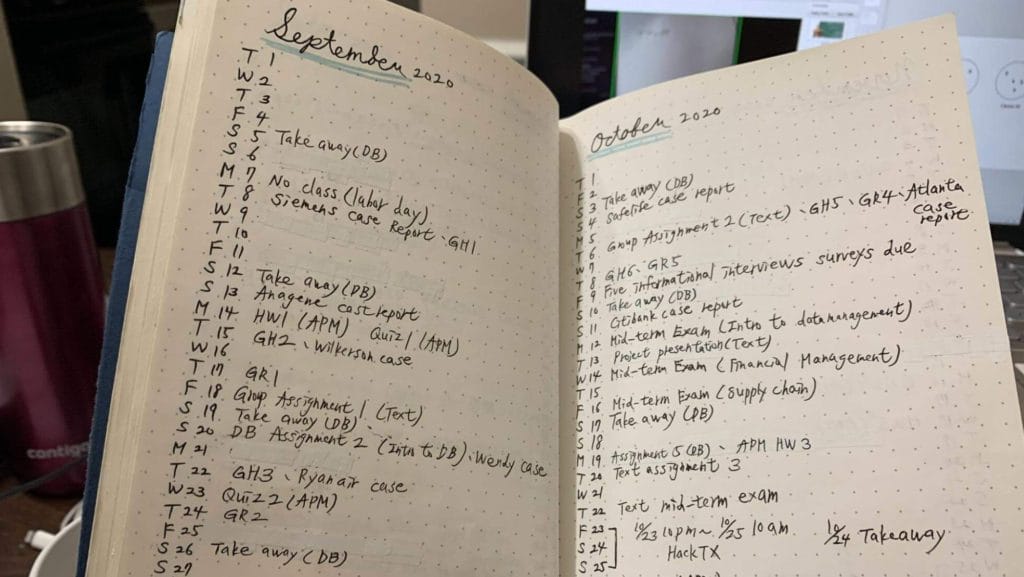 September 2020
T 1
W 2
T 3
F 4
S 5 Take away (DB)
S 6
M 7 No class (labor day)
T 8 Siemens case Report、GH1
W 9
T 10
F 11
S 12 Take away (DB)
S 13 Anagene cast report
M 14 HW1 (APM) Quiz 1 (APM)
T 15 GH2、Wilkerson case
W 16
T 17 GR1
F 18 Group Assignment 1 (Text)
S 19 Take away (DB)
S 20 DB Assignment 2 (Intro to DB)、Wendy case
M 21
T 22 GH3、Ryanair case
W 23 Quiz 2 (APM)
T 24 GR2
F 25
S 26 Take away (DB)
S 27
October 2020
T 1
F 2
S 3 Take away (DB)
S 4 Safelife case report
M 5
T 6 Group Assignment 2 (Text)、GH5、GR4、Atlanta case report
W 7
T 8 GH6、GR5
F 9 Five informational interviews surveys due
S 10 Take away (DB)
S 11 Citibank case report
M 12 Mid-term Exam (Intro to data management)
T 13 Project presentation (Text)
W 14 Mid-term Exam (Financial Management)
T 15
F 16 Mid-term Exam (Supply chain)
S 17 Take away (DB)
S 18
M 19 Assignment 5 (DB)、APM HW 3
T 20 Text assignment 3
W 21
T 22 Text mid-term exam
F 23 10/23 10pm~ 10/25 10am 10/24 Takeaway
S 24 HackTX
S 25
contigo